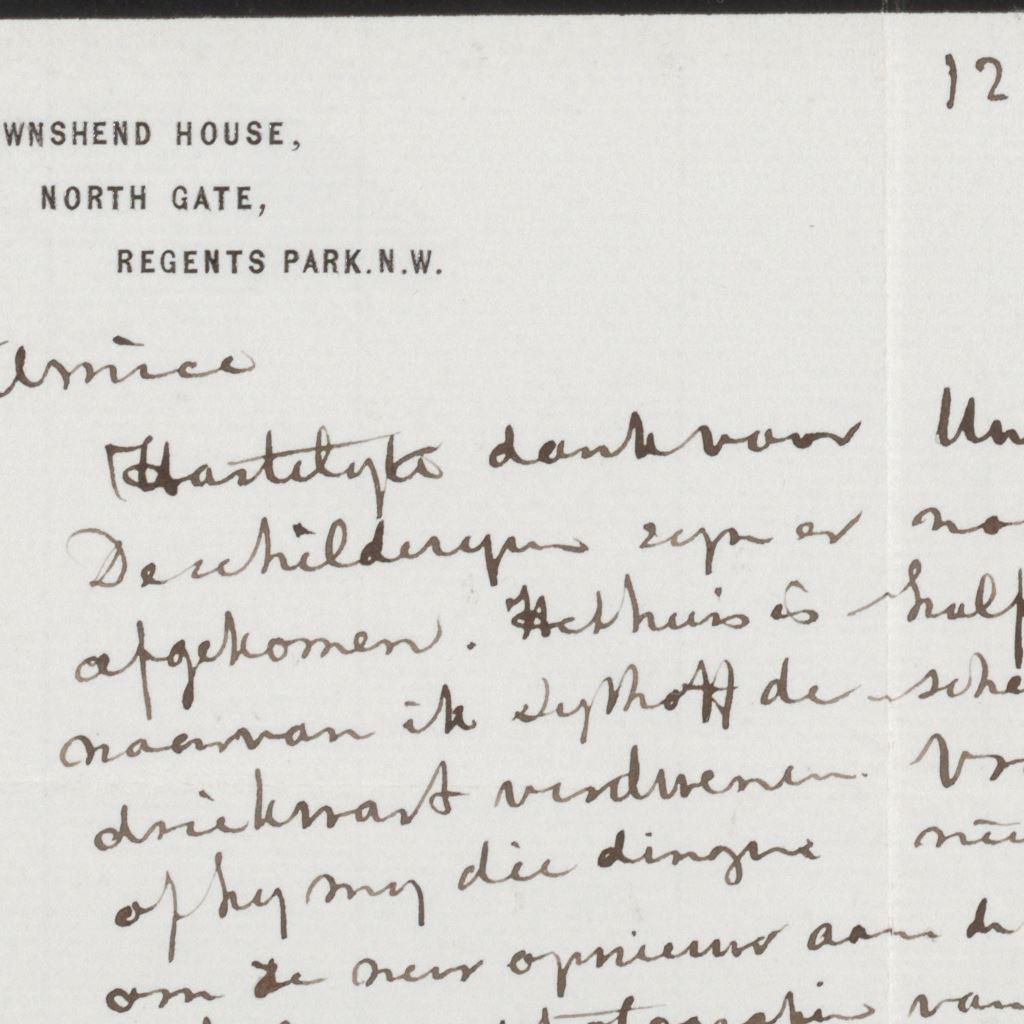 12
WNSHEND HOUSE,
NORTH GATE,
REGENTS PARK. N.W.
Amice
Hartelyke dank voor Uw
De schilderyen zyn er no
afgekomen. Het huis is half
waarvan ik Sythoff de sche
driekwart verdwenen. Vr
of hy my die dingen nie
om ze new opnieuw aan de
van